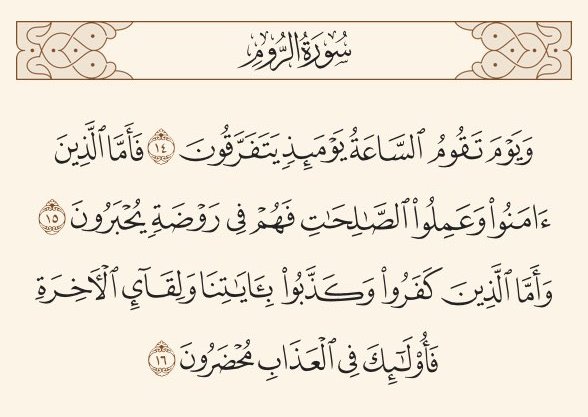 سُورَةُ الرُّومِ
وَيَوْمَ تَقُومُ ٱلسَّاعَةُ يَوْمَئِذٍ يَتَفَرَّقُونَ ١٤ فَأَمَّا ٱلَّذِينَ
ءَامَنُوا۟ وَعَمِلُوا۟ ٱلصَّـٰلِحَـٰتِ فَهُمْ فِى رَوْضَةٍ يُحْبَرُونَ ١٥
وَأَمَّا ٱلَّذِينَ كَفَرُوا۟ وَكَذَّبُوا۟ بِـَٔايَـٰتِنَا وَلِقَآئِ ٱلْـَٔاخِرَةِ
فَأُو۟لَـٰٓئِكَ فِى ٱلْعَذَابِ مُحْضَرُونَ ١٦